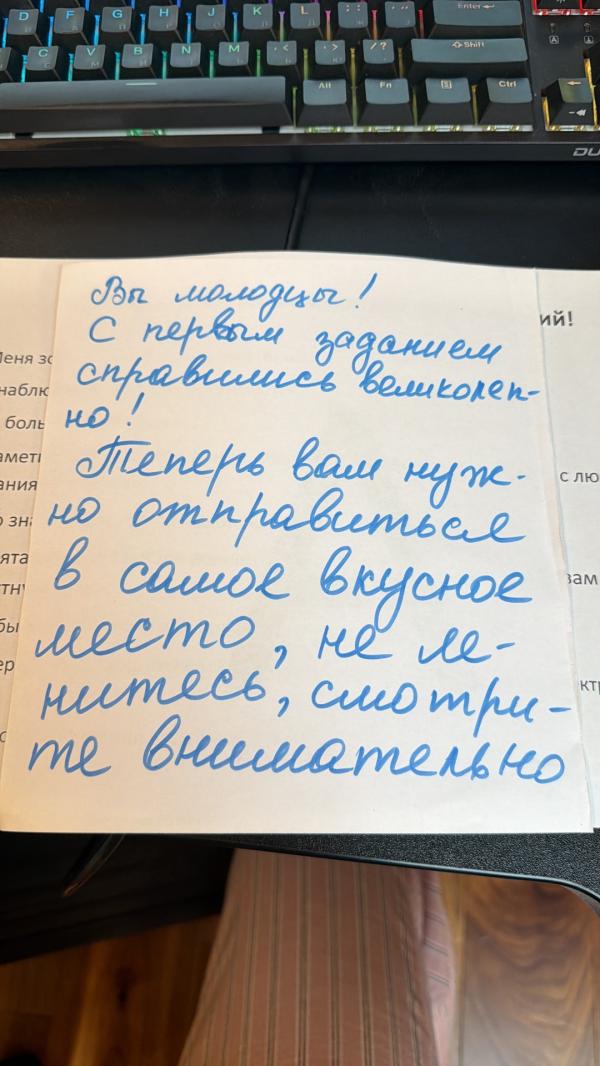 D F G H J K L Enter
C V B N M < > ? / Shift
Alt Fn Ctrl
DU
Вы молодцы!
С первым заданием
справились великолеп-
но!
Теперь вам нуж-
но отправиться
в самое вкусное
место, не ле-
нитесь, смотри-
те внимательно
ий!
с лю
вам
Меня зо
наблю
боль